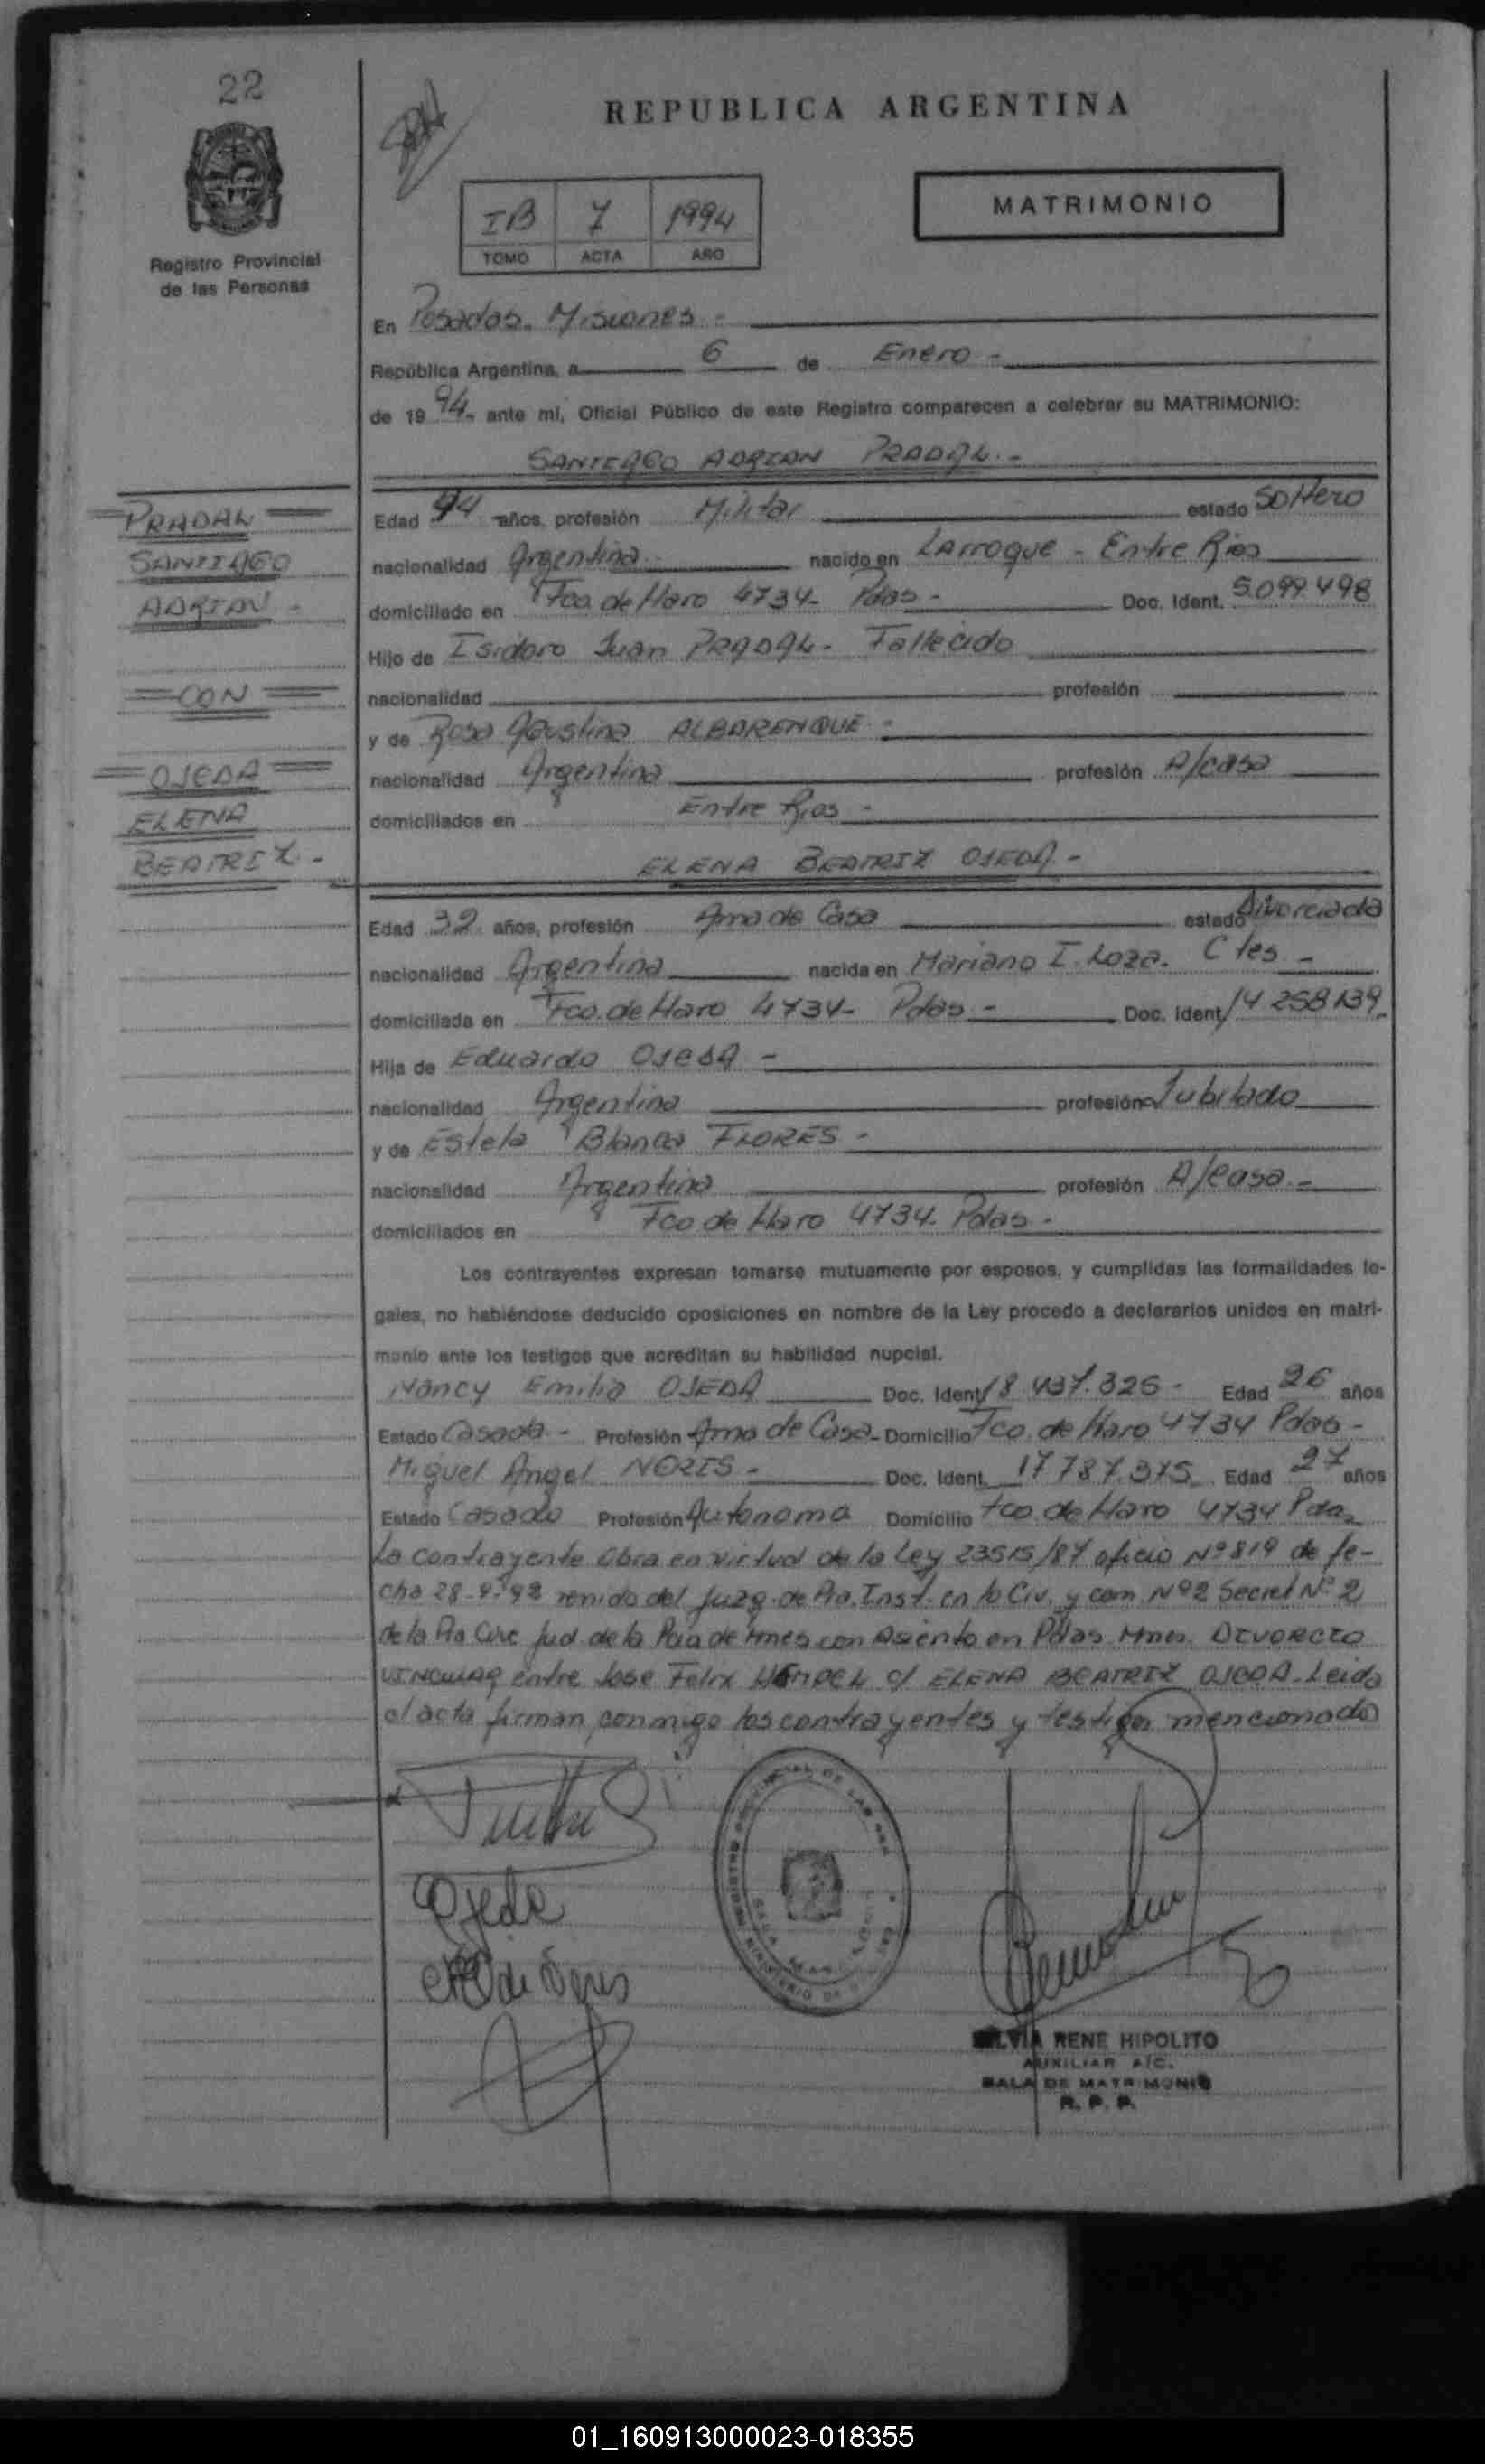 22
REPUBLICA ARGENTINA
MATRIMONIO
IB 7 1994
TOMO ACTA AÑO
Registro Provincial
de las Personas
En Posadas. Misiones -
República Argentina, a 6 de Enero -
de 19 94- ante mi, Oficial Público de este Registro comparecen a celebrar su MATRIMONIO:
SANTIAGO ADRIAN PRADAL.-
PRADAL
SANTIAGO
ADRIAN -
CON
OJEDA
ELENA
BEATRIZ -
Edad 44 años, profesión Militar estado Soltero
nacionalidad Argentina nacido en Larroque - Entre Rios
domiciliado en Fco de Haro 4734- Pdas - Doc. Ident. 5.099.498
Hijo de Isidoro Juan PRADAL - Fallecido
nacionalidad profesión
y de Rosa Agustina ALBARENQUE -
nacionalidad Argentina profesión A/casa
domiciliados en Entre Rios -
ELENA BEATRIZ OJEDA -
Edad 32 años, profesión Ama de Casa estado Divorciada
nacionalidad Argentina nacida en Mariano I. Loza. Ctes -
domiciliada en Fco. de Haro 4734- Pdas - Doc. Ident. 14 258139.
Hija de Eduardo OJEDA -
nacionalidad Argentina profesión Jubilado
y de Estela Blanca FLORES -
nacionalidad Argentina profesión A/casa.-
domiciliados en Fco de Haro 4734. Pdas -
Los contrayentes expresan tomarse mutuamente por esposos, y cumplidas las formalidades le-
gales, no habiéndose deducido oposiciones en nombre de la Ley procedo a declararlos unidos en matri-
monio ante los testigos que acreditan su habilidad nupcial.
Nancy Emilia OJEDA Doc. Ident. 18.437.326 - Edad 26 años
Estado Casada - Profesión Ama de Casa - Domicilio Fco. de Haro 4734 Pdas -
Miguel Angel NERIS - Doc. Ident. 17787.375 Edad 27 años
Estado Casado Profesión Autonoma Domicilio Fco. de Haro 4734 Pdas
La contrayente Obra en virtud de la Ley 23515/87 oficio Nº 819 de fe-
cha 28-4-92 venido del Juzg. de Pra. Inst. en lo Civ. y com. Nº 2 Secret Nº 2
de la Pra Circ Jud. de la Pcia de Mnes con Asiento en Pdas. Mnes. DIVORCIO
VINCULAR entre Jose Felix c/ ELENA BEATRIZ OJEDA - Leida
el acta firman conmigo los contrayentes y testigos mencionados
Ojeda
SILVIA RENE HIPOLITO
AUXILIAR A/C.
SALA DE MATRIMONIO
R. P. P.
01_160913000023-018355